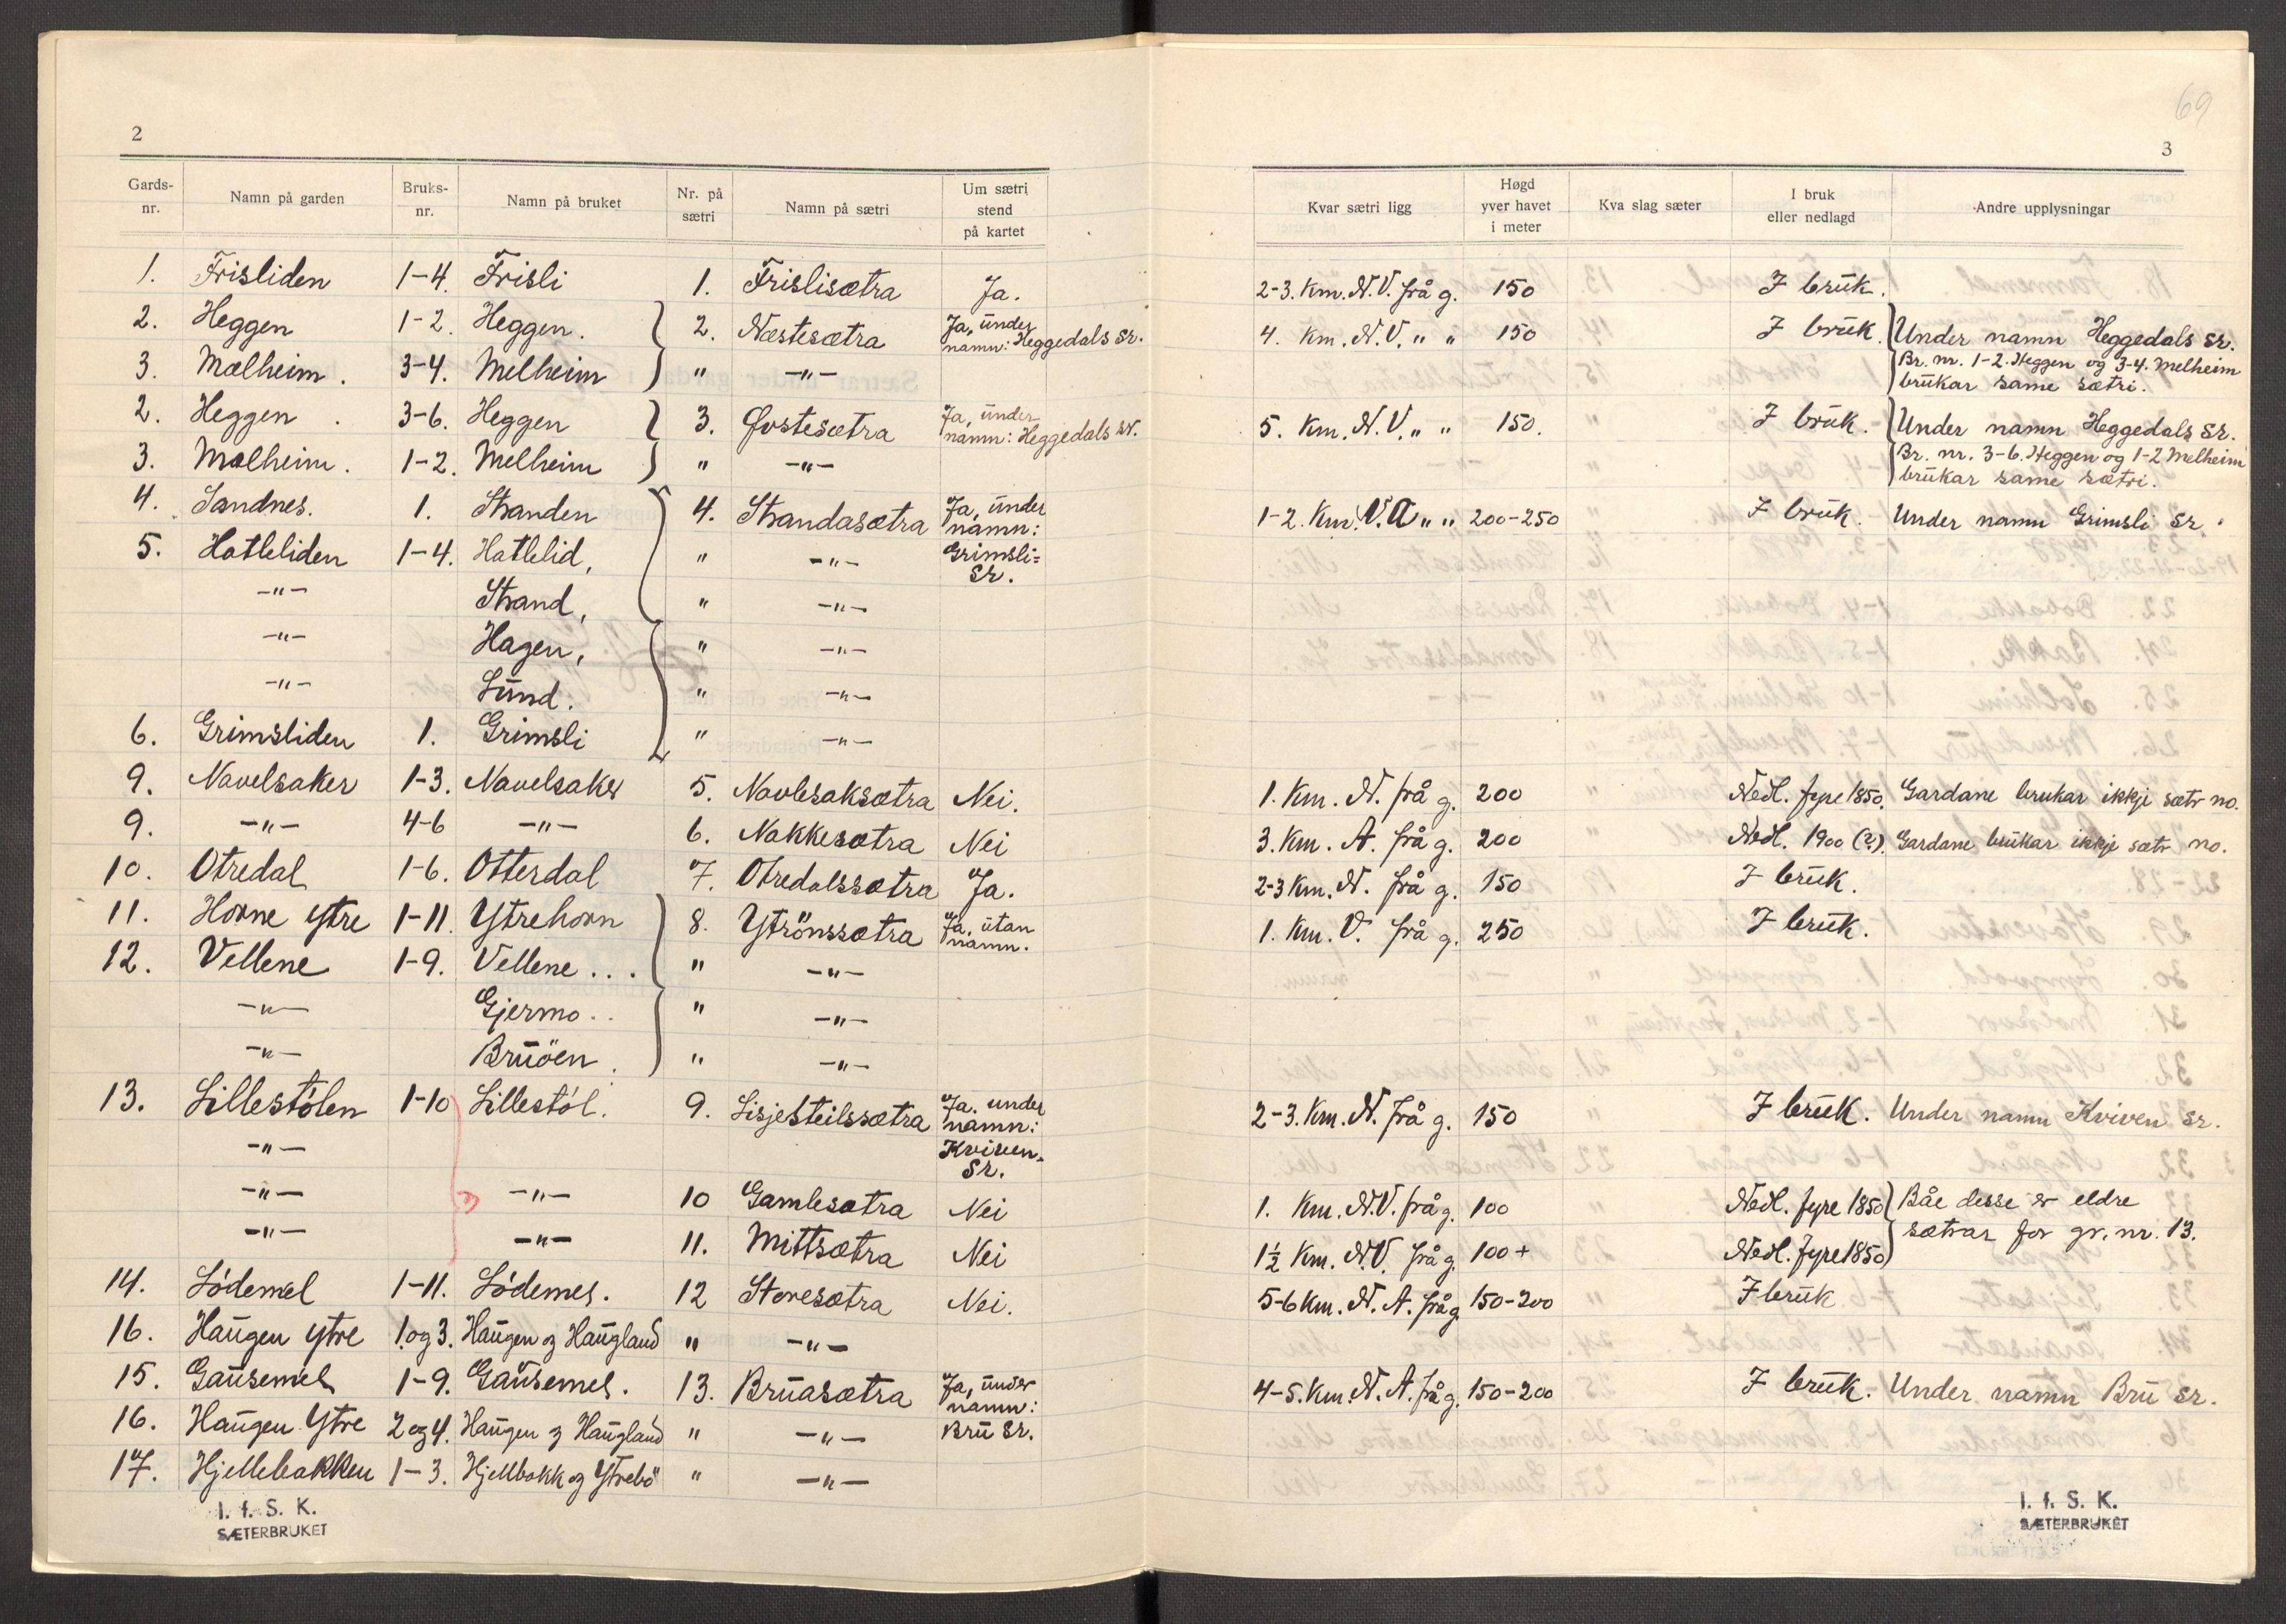 2
Gards-nr. Namn på garden Bruks-nr. Namn på bruket Nr. på sætri Namn på sætri Um sætri stend på kartet
1. Frisliden 1-4. Frisli 1. Frislisætra Ja.
2. Heggen 1-2. Heggen. 2. Næstesætra Ja, under namn: Heggedals sr.
3. Mælheim. 3-4. Melheim " -"-
2. Heggen . 3-6. Heggen 3. Øvstesætra Ja, under namn: Heggedals sr.
3. Mælheim. 1-2. Melheim " -"-
4. Sandnes. 1. Stranden 4. Strandasætra Ja, under namn:
5. Hatleliden 1-4. Hatlelid, " -"- Grimsli= sr.
-"- Strand, " -"-
-"- Hagen, " -"-
-"- Lund. " -"-
6. Grimsliden 1. Grimsli " -"-
9. Navelsaker 1-3. Navelsaker 5. Navlesaksætra Nei.
9. -"- 4-6 -"- 6. Nakkesætra Nei
10. Otredal 1-6. Otterdal 7. Otredalssætra Ja.
11. Horne ytre 1-11. Ytrehorn 8. Ytrönssætra Ja, utan namn.
12. Vellene 1-9. Vellene... " -"-
-"- Gjermo.. " -"-
-"- Bruöen. " -"-
13. Lillestölen 1-10 Lillestöl. 9. Lisjesteilssætra Ja. under namn:
-"- Kviven= sr.
-"- -"- 10 Gamlesætra Nei
-"- -"- 11. Mittsætra Nei
14. Lödemel 1-11. Lödemel. 12 Storesætra Nei.
16. Haugen ytre 1.og 3. Haugen og Haugland " -"-
15. Gausemel 1-9. Gausemel. 13. Bruasætra Ja, under namn:
16. Haugen Ytre 2 og 4. Haugen og Haugland " -"- Bru sr.
17. Hjellebakken 1-3. Hjellbakk og Ytrebö " -"-
I. f. S. K.
SÆTERBRUKET
69
3
Kvar sætri ligg Høgd yver havet i meter Kva slag sæter I bruk eller nedlagd Andre upplysningar
2-3. Km. N.V. frå g. 150 I bruk.
4. Km. N.V. " " 150 I bruk. Under namn Heggedals sr.
Br. nr. 1-2. Heggen og 3-4. Melheim
brukar same sætri.
5. Km. N.V. " " 150. I bruk. Under namn Heggedals sr.
Br. nr. 3-6. Heggen og 1-2 Melheim
brukar same sætri.
1-2. Km. V.A " " 200-250 I bruk. Under namn Grimsli sr.
1. Km. N. frå g. 200 Nedl. fyre 1850. Gardane brukar ikkje sætr no.
3. Km. A. frå g. 200 Nedl. 1900 (?). Gardane brukar ikkje sætr no.
2-3 Km. N. frå g. 150 I bruk.
1. Km. V. frå g. 250 I bruk.
2-3. Km. N. frå g. 150 I bruk. Under namn Kviven sr.
1. Km. N.V. frå g. 100 Nedl. fyre 1850 Båe desse er eldre
sætrar for gr. nr. 13.
1½ Km. N.V. frå g. 100+ Nedl. fyre 1850
5-6 Km. N. A. frå g. 150-200 I bruk
4-5. Km. N. A. frå g. 150-200 I bruk. Under namn Bru sr.
I. f. S. K.
SÆTERBRUKET